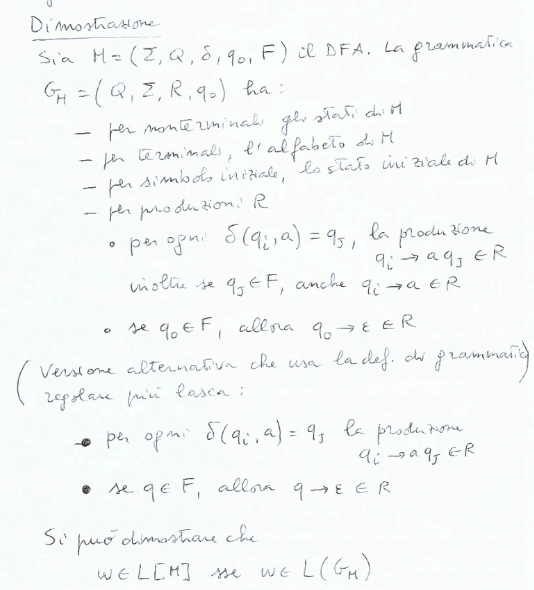 Dimostrazione
Sia M = (Σ, Q, δ, q₀, F) il DFA. La grammatica
G_M = (Q, Σ, R, q₀) ha:
— per nonterminali gli stati di M
— per terminali, l'alfabeto di M
— per simbolo iniziale, lo stato iniziale di M
— per produzioni R
∘ per ogni δ(qᵢ, a) = qⱼ, la produzione
qᵢ → a qⱼ ∈ R
inoltre se qⱼ ∈ F, anche qᵢ → a ∈ R
∘ se q₀ ∈ F, allora q₀ → ε ∈ R
(Versione alternativa che usa la def. di grammatica)
regolare più lasca:
• per ogni δ(qᵢ, a) = qⱼ la produzione
qᵢ → a qⱼ ∈ R
• se q ∈ F, allora q → ε ∈ R
Si può dimostrare che
w ∈ L[M] sse w ∈ L(G_M)